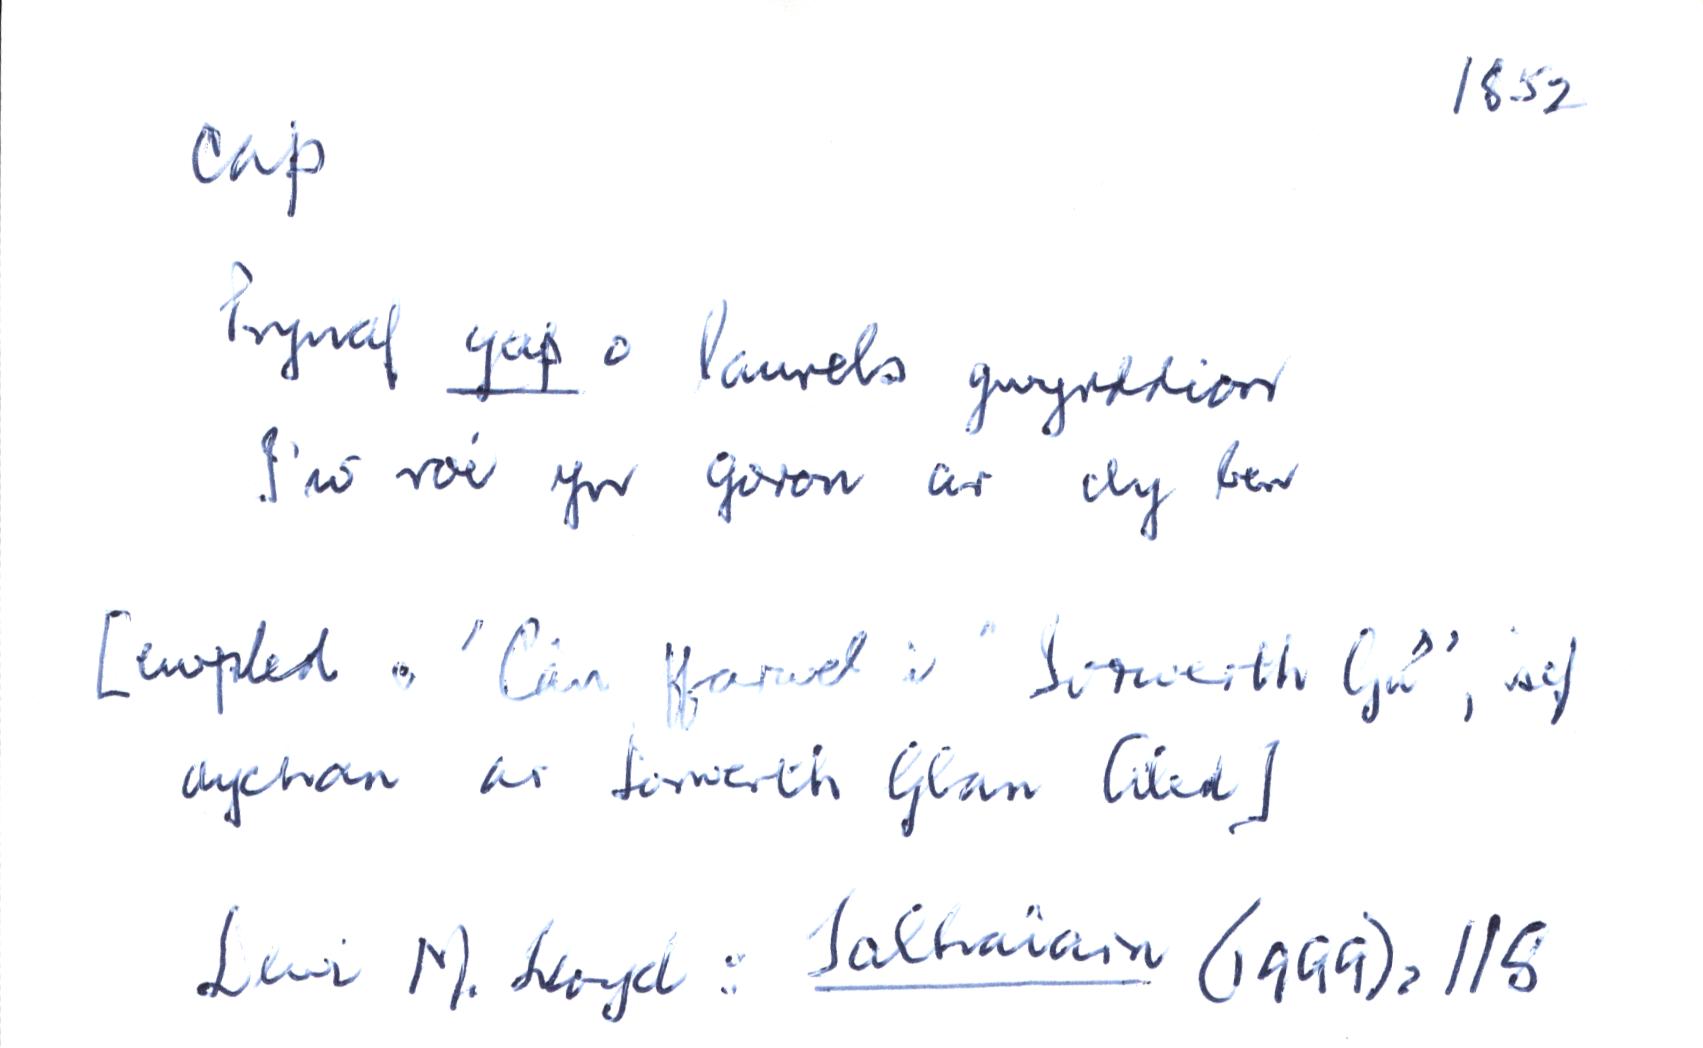 1852
cap
Prynaf gap o laurels gwyrddion
I'w roi yn goron ar dy ben
[cwpled o 'Cân ffarwel i "Iorwerth Gû"', sef
dychan ar Iorwerth Glan Aled]
Dewi M. Lloyd : Talhaiarn (1999), 118